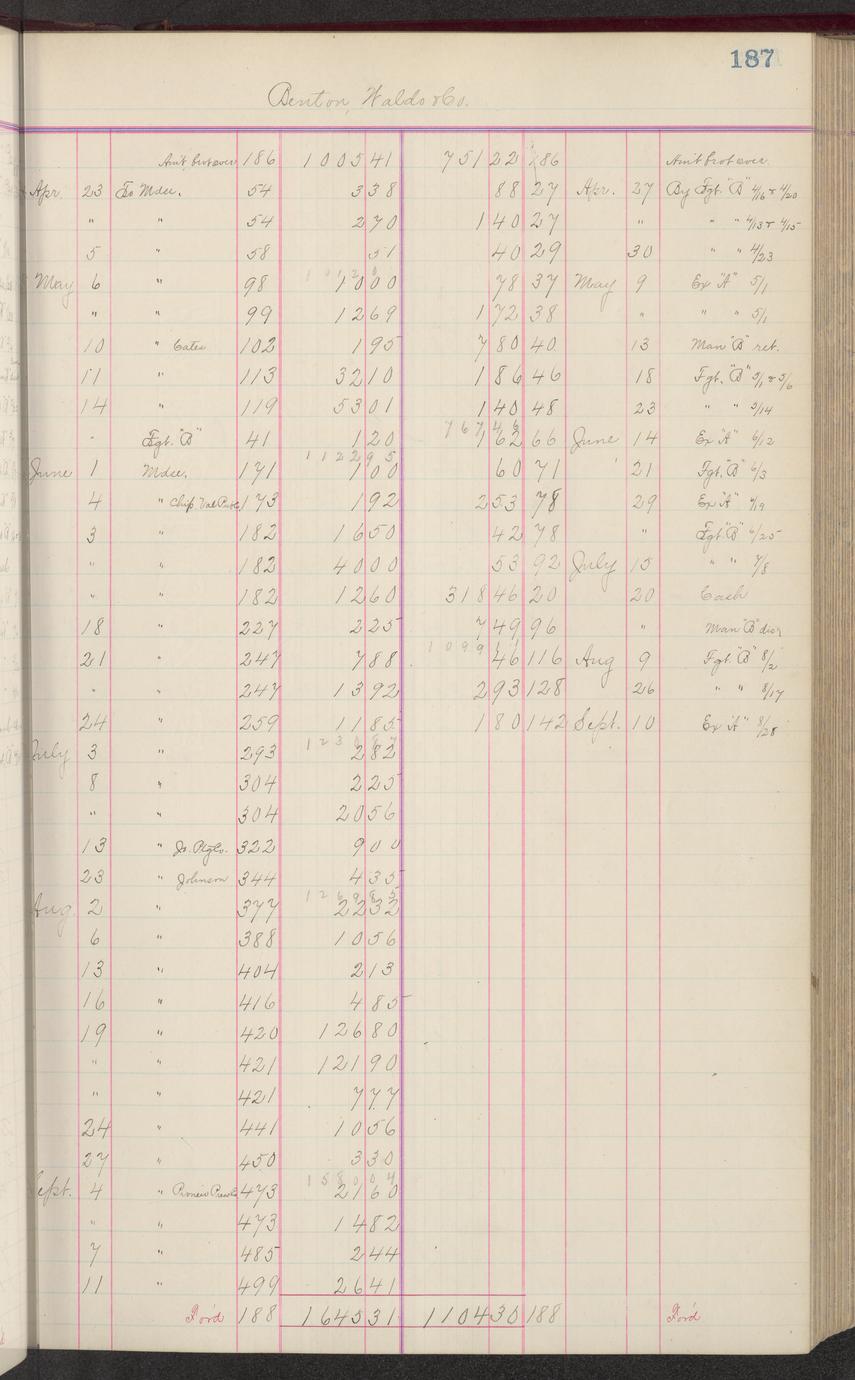 187
Benton, Waldo & Co.
Am't brot over 186 1005 41 751 22 186 Am't brot over
Apr. 23 To Mdse. 54 3 38 88 27 Apr. 27 By Fgt. "B" 4/16 & 4/20
" " 54 2 70 1 40 27 " " " 4/13 & 4/15
5 " 58 51 40 29 30 " " 4/23
May 6 " 98 10 00 78 37 May 9 Ex "A" 5/1
" " 99 12 69 1 72 38 " " " 5/1
10 " Cates 102 1 95 7 80 40 13 Man "B" ret.
11 " 113 32 10 1 86 46 18 Fgt. "B" 5/1 & 5/6
14 " 119 53 01 1 40 48 23 " " 5/14
" Fgt. "B" 41 1 20 767 46 1 62 66 June 14 Ex "A" 6/12
1122 95
June 1 Mdse. 171 1 00 60 71 21 Fgt. "B" 6/3
4 " Chip. Val 173 1 92 2 53 78 29 Ex "A"
3 " 182 16 50 42 78 " Fgt. "B" 6/25
" " 182 40 00 53 92 July 15 " " 7/8
" " 182 12 60 318 46 20 20 Cash
18 " 227 2 25 7 49 96 " Man "B"
21 " 247 7 88 46 116 Aug 9 Fgt. "B" 8/2
" " 247 13 92 2 93 128 26 " " 8/17
24 " 259 11 85 1 80 142 Sept. 10 Ex "A" 8/28
July 3 " 293 2 82
8 " 304 2 25
" " 304 20 56
13 " Jo. Ptg Co. 322 9 00
23 " Johnson 344 4 35
Aug. 2 " 377 22 32
6 " 388 10 56
13 " 404 2 13
16 " 416 4 85
19 " 420 126 80
" " 421 121 90
" " 421 7 77
24 " 441 10 56
27 " 450 3 30
1580 04
Sept. 4 " 473 21 60
" " 473 14 82
7 " 485 2 44
11 " 499 26 41
For'd 188 1645 31 1104 30 188 For'd